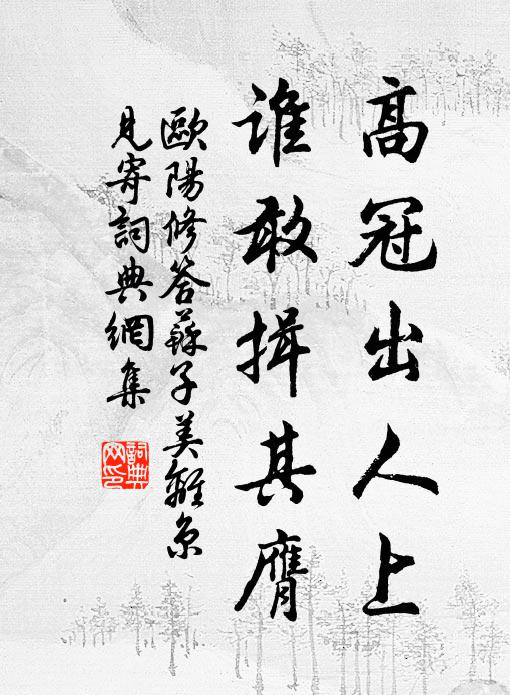 高冠出人上
谁敢揖其膺
歐陽修答蘇子美離京
見寄詞典網集
詞典網印